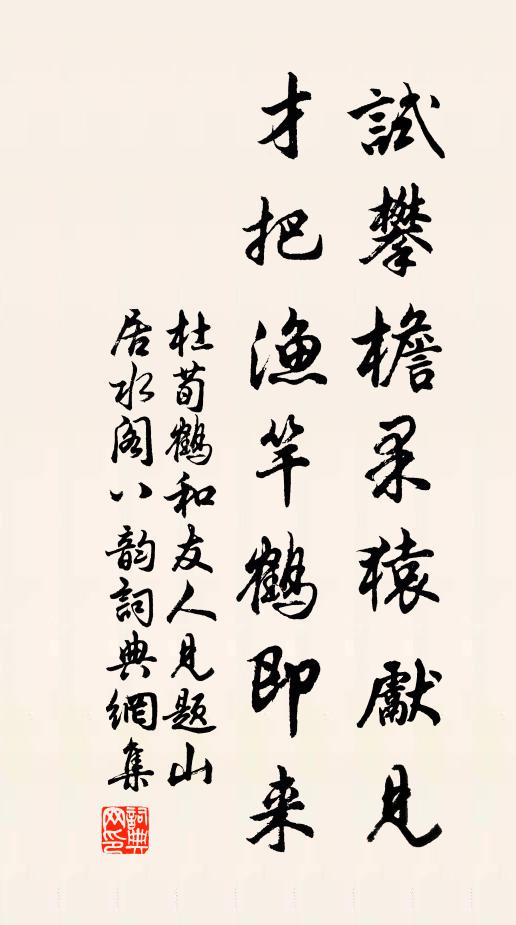 試攀檐果猿獻見
才把漁竿鶴即来
杜荀鶴和友人見題山
居水閣八韵詞典網集
詞典
网印